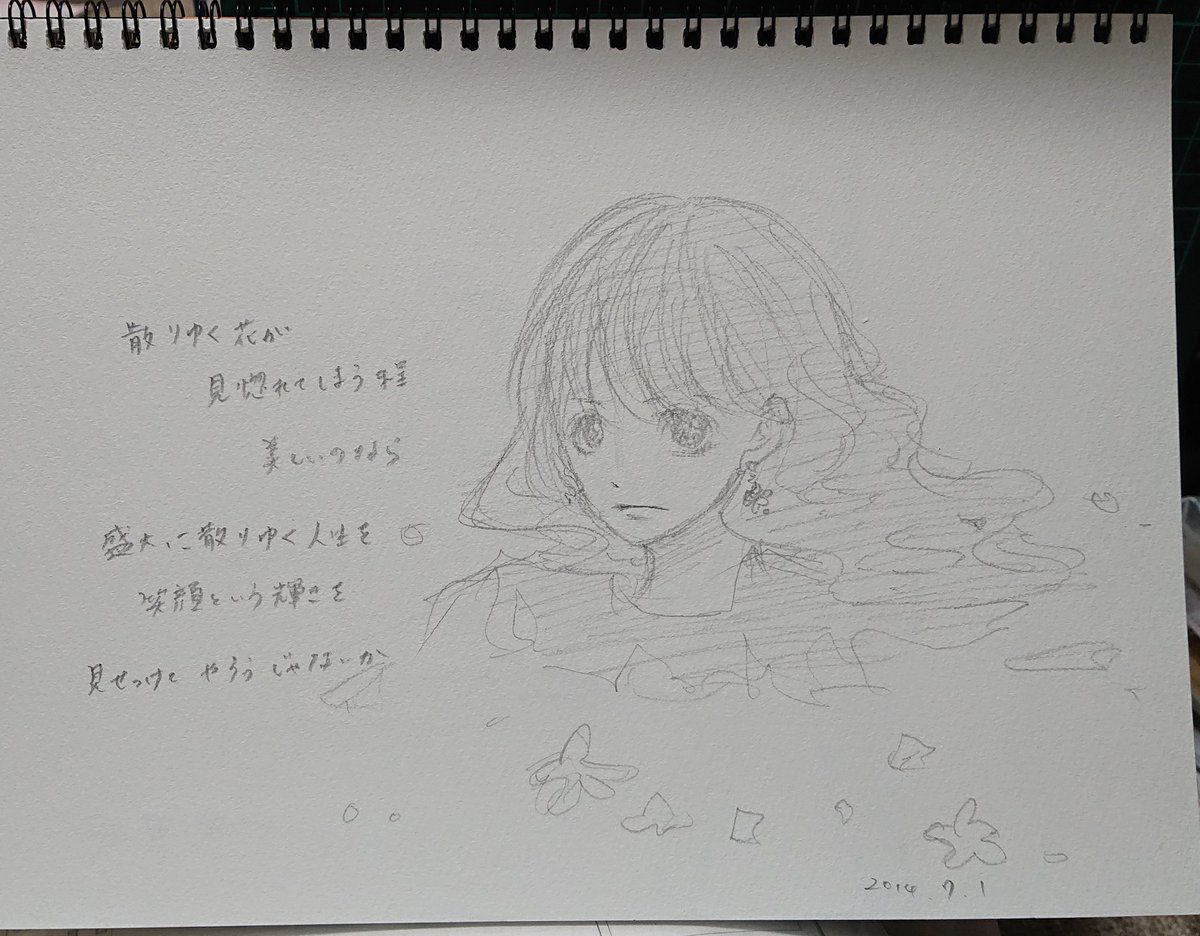 散りゆく花が
見惚れてしまう程
美しいのなら
盛大に散りゆく人生を
笑顔という輝きを
見せつけてやろうじゃないか
2014.7.1